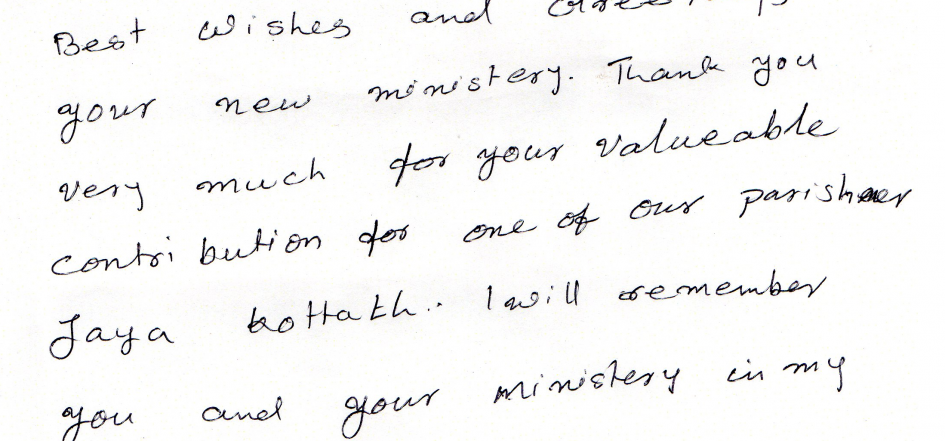 Best wishes and
your new ministery. Thank you
very much for your valueable
contribution for one of our parishner
Jaya kottath. I will remember
you and your ministery in my